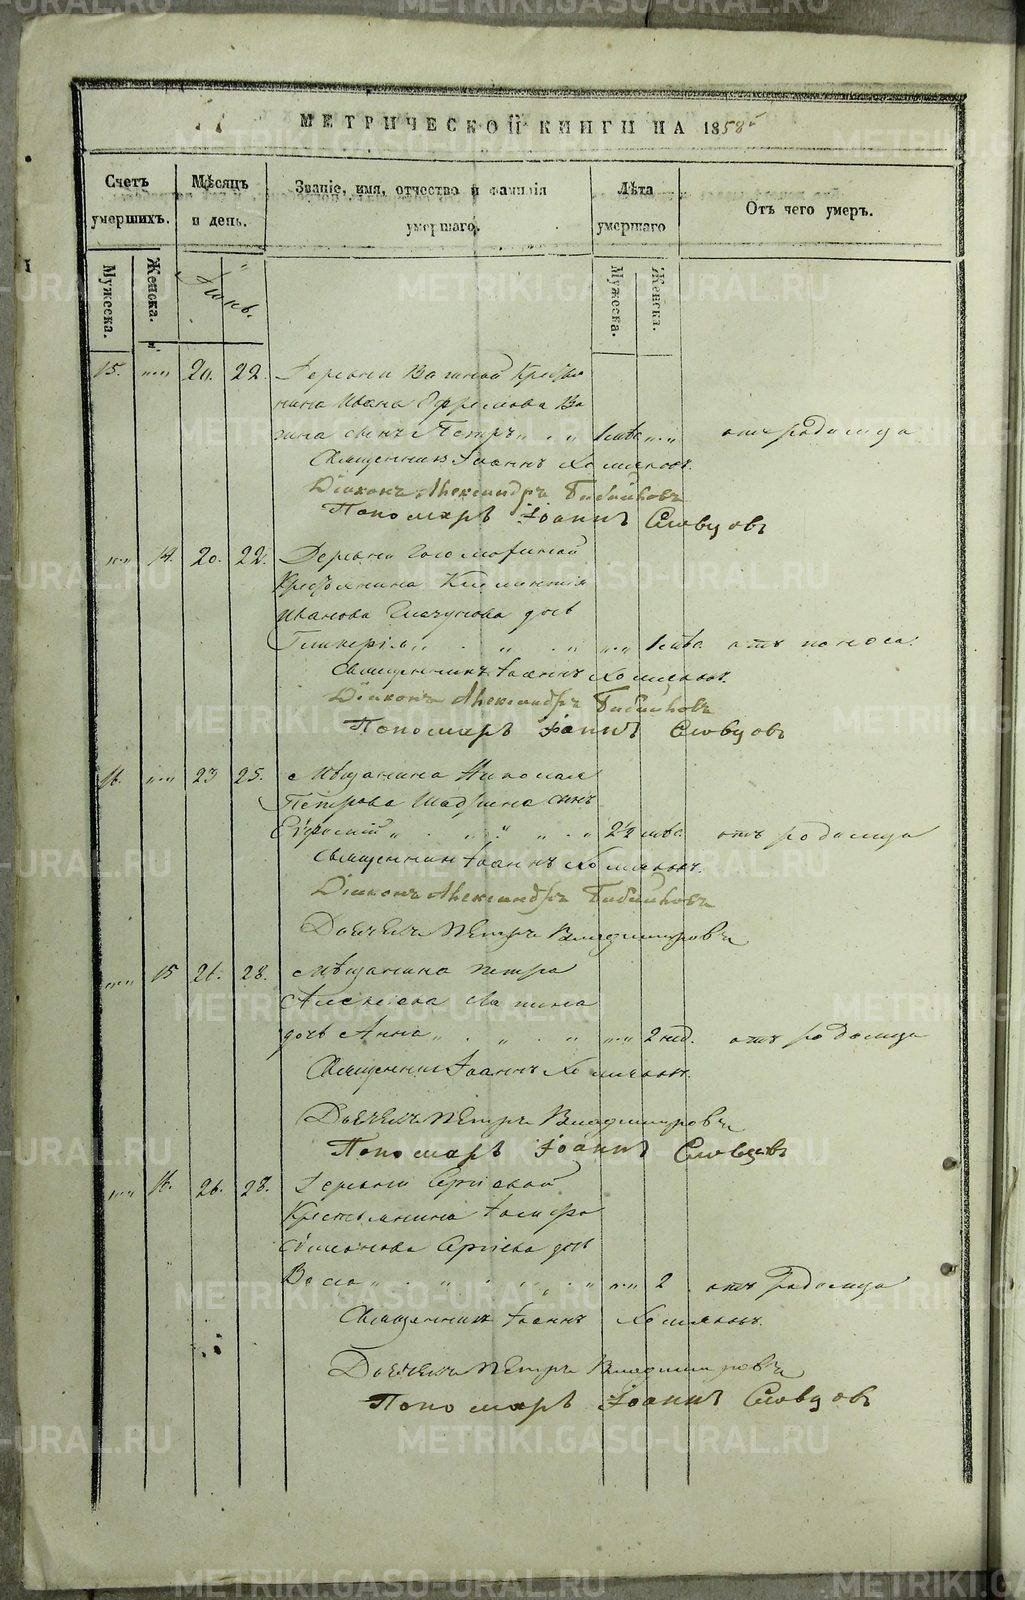 МЕТРИЧЕСКОЙ КНИГИ НА 1858
Счетъ умершихъ.
Мѣсяцъ и день.
Званіе, имя, отчество и фамилія умершаго.
Лѣта умершаго
Отъ чего умеръ.
Мужеска.
Женска.
Іюнь.
Мужеска.
Женска.
15. 20. 22. Деревни Крестья
нина Ивана Ефремова Ва
гина сынъ Петръ 1 отъ родимца
Священникъ Іоаннъ Хомяковъ.
Діаконъ Александръ Бибиковъ
Пономарь Іоаннъ Словцовъ
14. 20. 22. Деревни
Крестьянина Климентія
Иванова дочь
Гликерія 1 отъ поноса.
Священникъ Іоаннъ Хомяковъ.
Діаконъ Александръ Бибиковъ
Пономарь Іоаннъ Словцовъ
16. 23 25. Мѣщанина Николая
Петрова Шадрина сынъ
2 1/2 отъ родимца
Священникъ Іоаннъ Хомяковъ.
Діаконъ Александръ Бибиковъ
Дьячекъ Петръ Владимировъ
15 26. 28. Мѣщанина Петра
Алексѣева
дочь Анна 2 нед. отъ родимца
Священникъ Іоаннъ Хомяковъ.
Дьячекъ Петръ Владимировъ
Пономарь Іоаннъ Словцовъ
16. 26. 28. Деревни
Крестьянина
дочь
2 отъ Родимца
Священникъ Іоаннъ Хомяковъ.
Дьячекъ Петръ Владимировъ
Пономарь Іоаннъ Словцовъ
METRIKI.GASO-URAL.RU